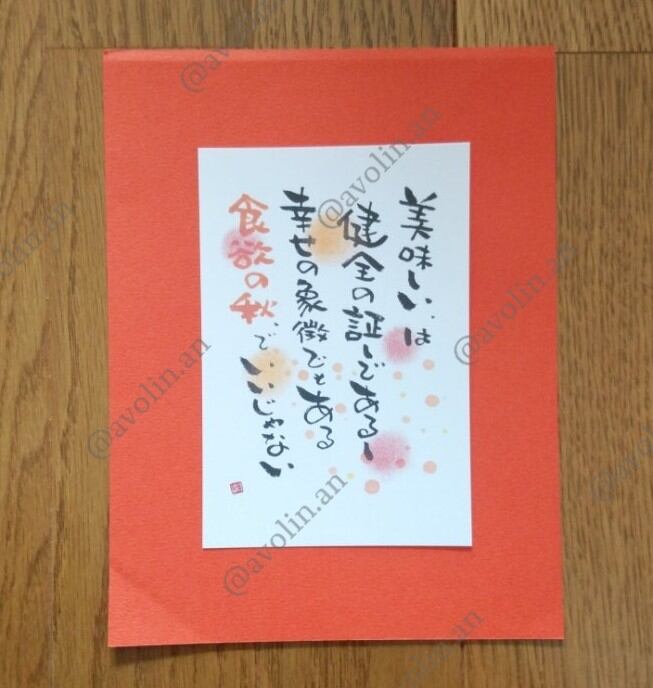 美味しい、は
健全の証しであるし
幸せの象徴でもある
食欲の秋、で
いいじゃない
@avolin.an
@avolin.an
@avolin.an
@avolin.an
@avolin.an